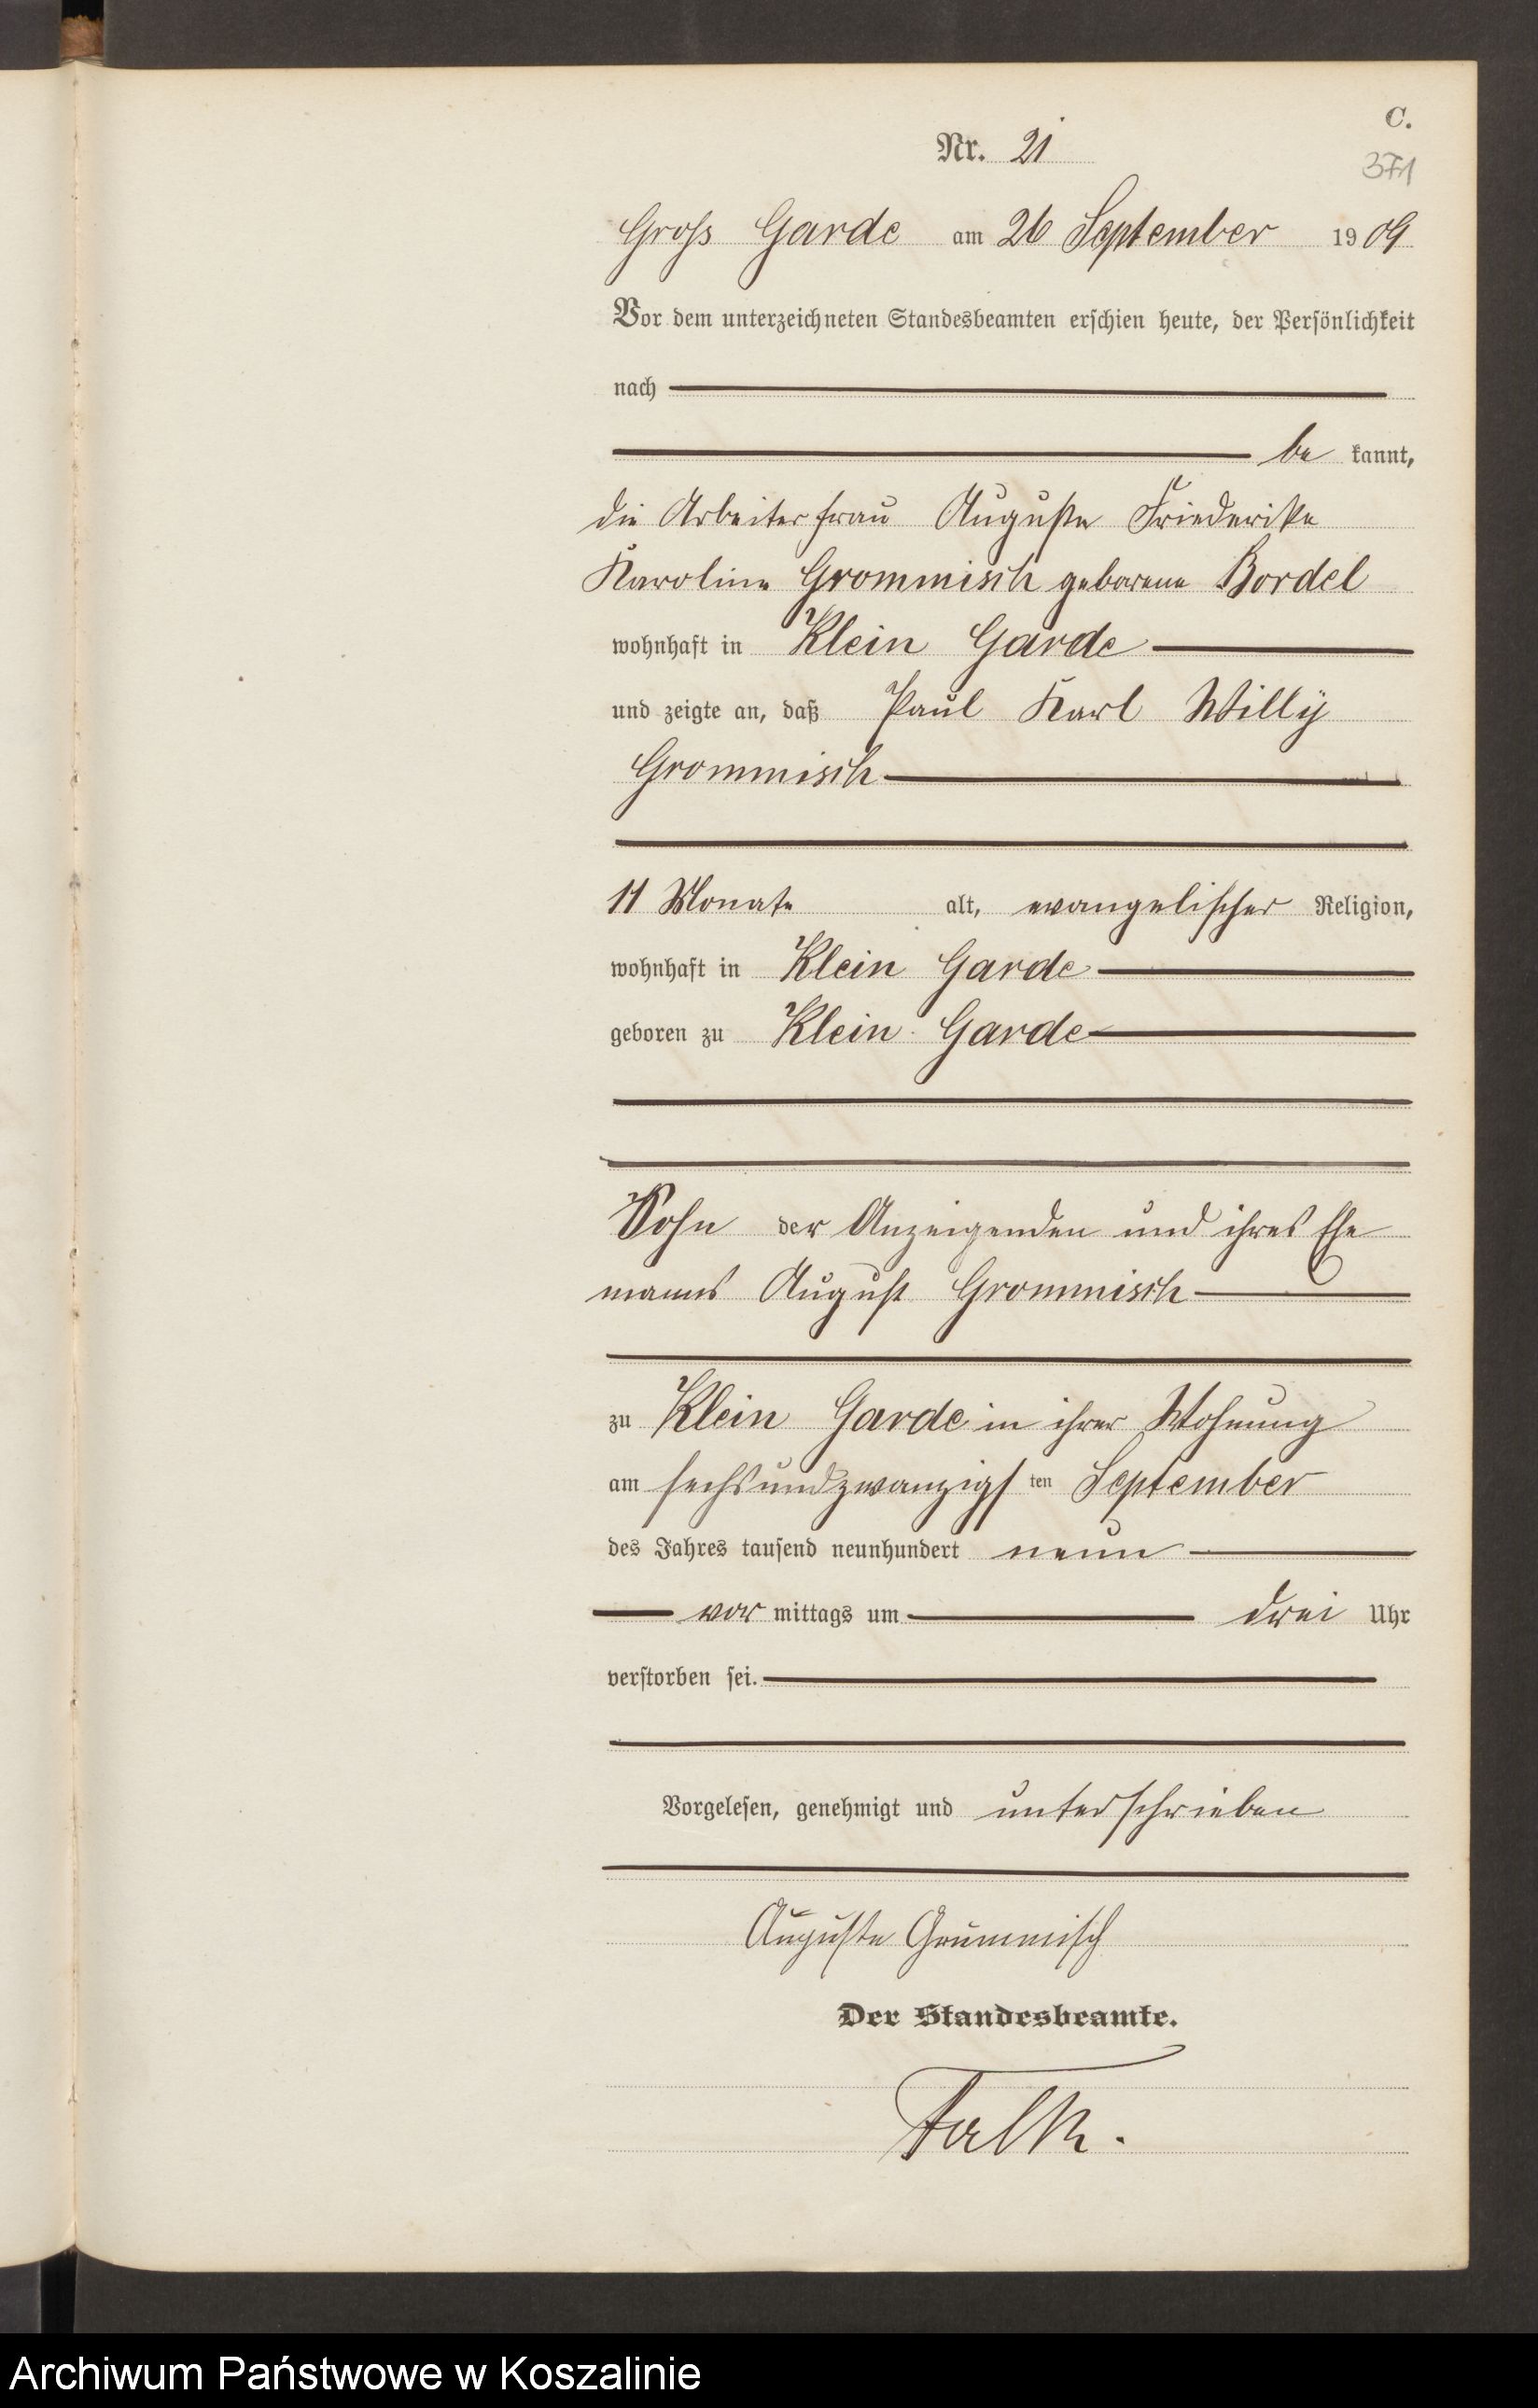 C.
Nr. 21
371
Gross Garde am 26 September 1909
Vor dem unterzeichneten Standesbeamten erschien heute, der Persönlichkeit
nach
be kannt,
die Arbeiterfrau Auguste Friederike
Karoline Grommisch geborene Bordel
wohnhaft in Klein Garde
und zeigte an, daß Paul Karl Willy
Grommisch
11 Monate alt, evangelischer Religion,
wohnhaft in Klein Garde
geboren zu Klein Garde
Sohn der Anzeigenden und ihres Ehe
manns August Grommisch
zu Klein Garde in ihrer Wohnung
am sechsundzwanzigsten September
des Jahres tausend neunhundert neun
vor mittags um drei Uhr
verstorben sei.
Vorgelesen, genehmigt und unterschrieben
Auguste Grummisch
Der Standesbeamte.
Falk.
Archiwum Państwowe w Koszalinie